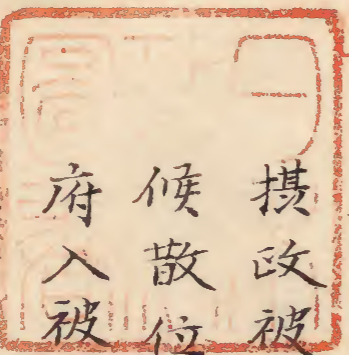 摂政被
候散位
府入被